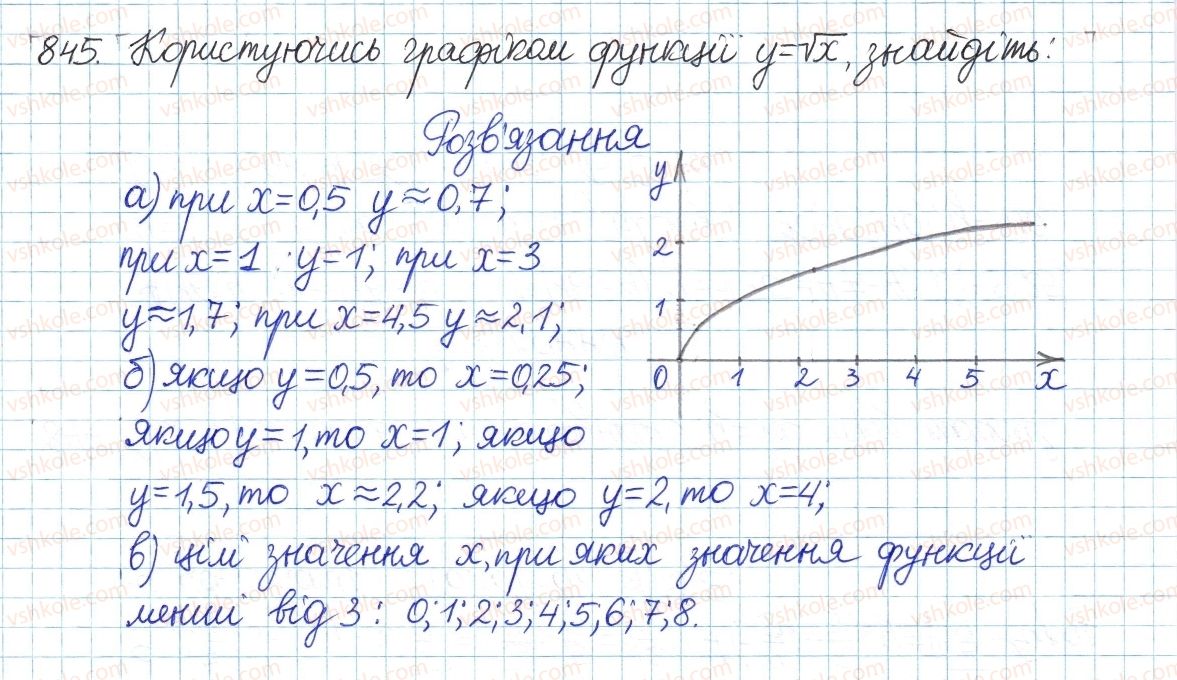 845. Користуючись графіком функції y=√x, знайдіть:
Розв'язання
а) при x=0,5 y≈0,7;
при x=1 y=1; при x=3
y≈1,7; при x=4,5 y≈2,1;
б) якщо y=0,5, то x=0,25;
якщо y=1, то x=1; якщо
y=1,5, то x≈2,2; якщо y=2, то x=4;
в) цілі значення x, при яких значення функції
менші від 3: 0; 1; 2; 3; 4; 5; 6; 7; 8.
y
2
1
0 1 2 3 4 5 x
vshkole.com